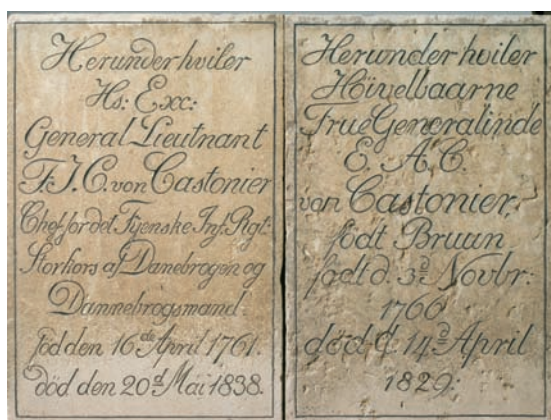 Herunder hviler
Hs: Exc:
General Lieutnant
F. J. C. von Castonier
Chef for det Fyenske Inf: Rgt:
Storkors af Danebrogen og
Dannebrogsmand
född den 16de April 1761.
död den 20d Mai 1838.
Herunder hviler
Höivelbaarne
Frue Generalinde
E. A. C.
von Castonier,
födt Bruun
födt d. 3d Novbr:
1760
död d. 14d April
1829.